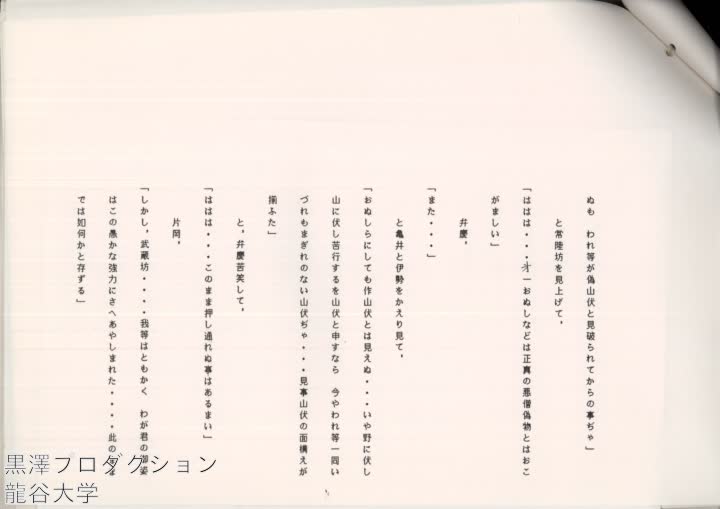 ぬも　われ等が偽山伏と見破られてからの事ぢゃ」
と常陸坊を見上げて、
「ははは・・・オ一おぬしなどは正真の悪僧偽物とはおこ
がましい」
弁慶、
「また・・・」
と亀井と伊勢をかえり見て、
「おぬしらにしても作山伏とは見えぬ・・・いや野に伏し
山に伏し苦行するを山伏と申すなら　今やわれ等一同い
づれもまぎれのない山伏ぢゃ・・・見事山伏の面構えが
揃ふた」
と、弁慶苦笑して、
「ははは・・・このまま押し通れぬ事はあるまい」
片岡、
「しかし、武蔵坊・・・・我等はともかく　わが君の御姿
はこの愚かな強力にさへあやしまれた・・・・此の
では如何かと存ずる」
黒澤プロダクション
龍谷大学